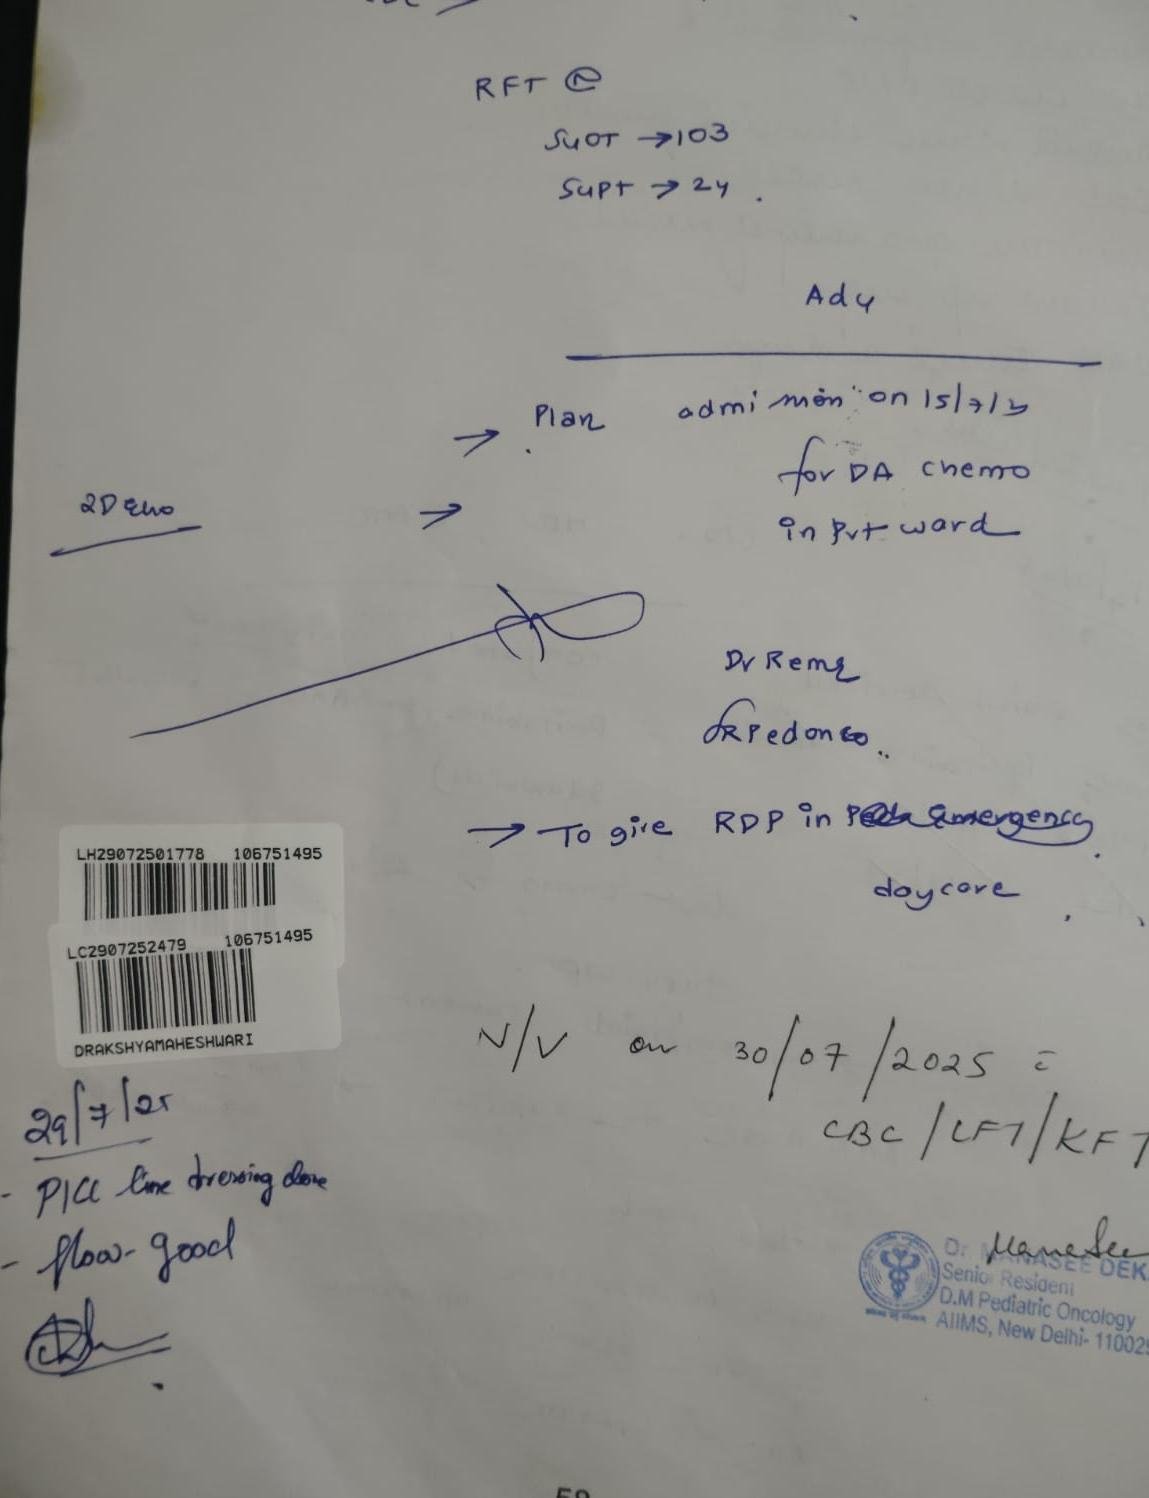 RFT Ⓝ
SGOT → 103
SGPT → 24.
Adv
→ Plan admission on 15/7/
for DA chemo
in Pvt ward
2D Echo →
Dr
SR Pedonco..
→ To give RDP in Emergency.
daycare
LH29072501778 106751495
LC2907252479 106751495
DRAKSHYAMAHESHWARI
N/V on 30/07/2025 c̄
CBC/LFT/KFT
29/7/25
- PICC line dressing done
- flow - good
Manasee
Dr. MANASEE DEK
Senior Resident
D.M Pediatric Oncology
AIIMS, New Delhi- 11002